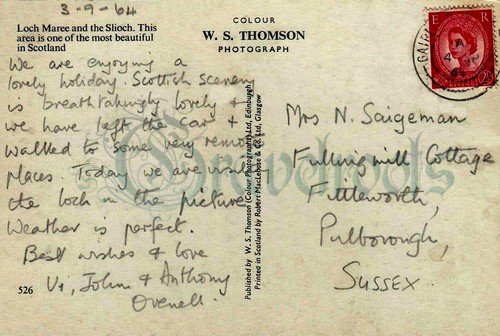 3-9-64
Loch Maree and the Slioch. This
area is one of the most beautiful
in Scotland
We are enjoying a
lovely holiday. Scottish scenery
is breathtakingly lovely &
we have left the car &
walked to some very remote
places Today we are visiting
the loch in the picture
Weather is perfect.
Best wishes & love
Vi, John & Anthony
Ovenell.
526
COLOUR
W. S. THOMSON
PHOTOGRAPH
Published by W. S. Thomson (Colour Photographs) Ltd, Edinburgh
Printed in Scotland by Robert MacLehose & Co. Ltd, Glasgow
E R
POSTAGE
REVENUE
Mrs N. Saigeman
Fulling mill Cottage
Fittleworth,
Pulborough,
SUSSEX